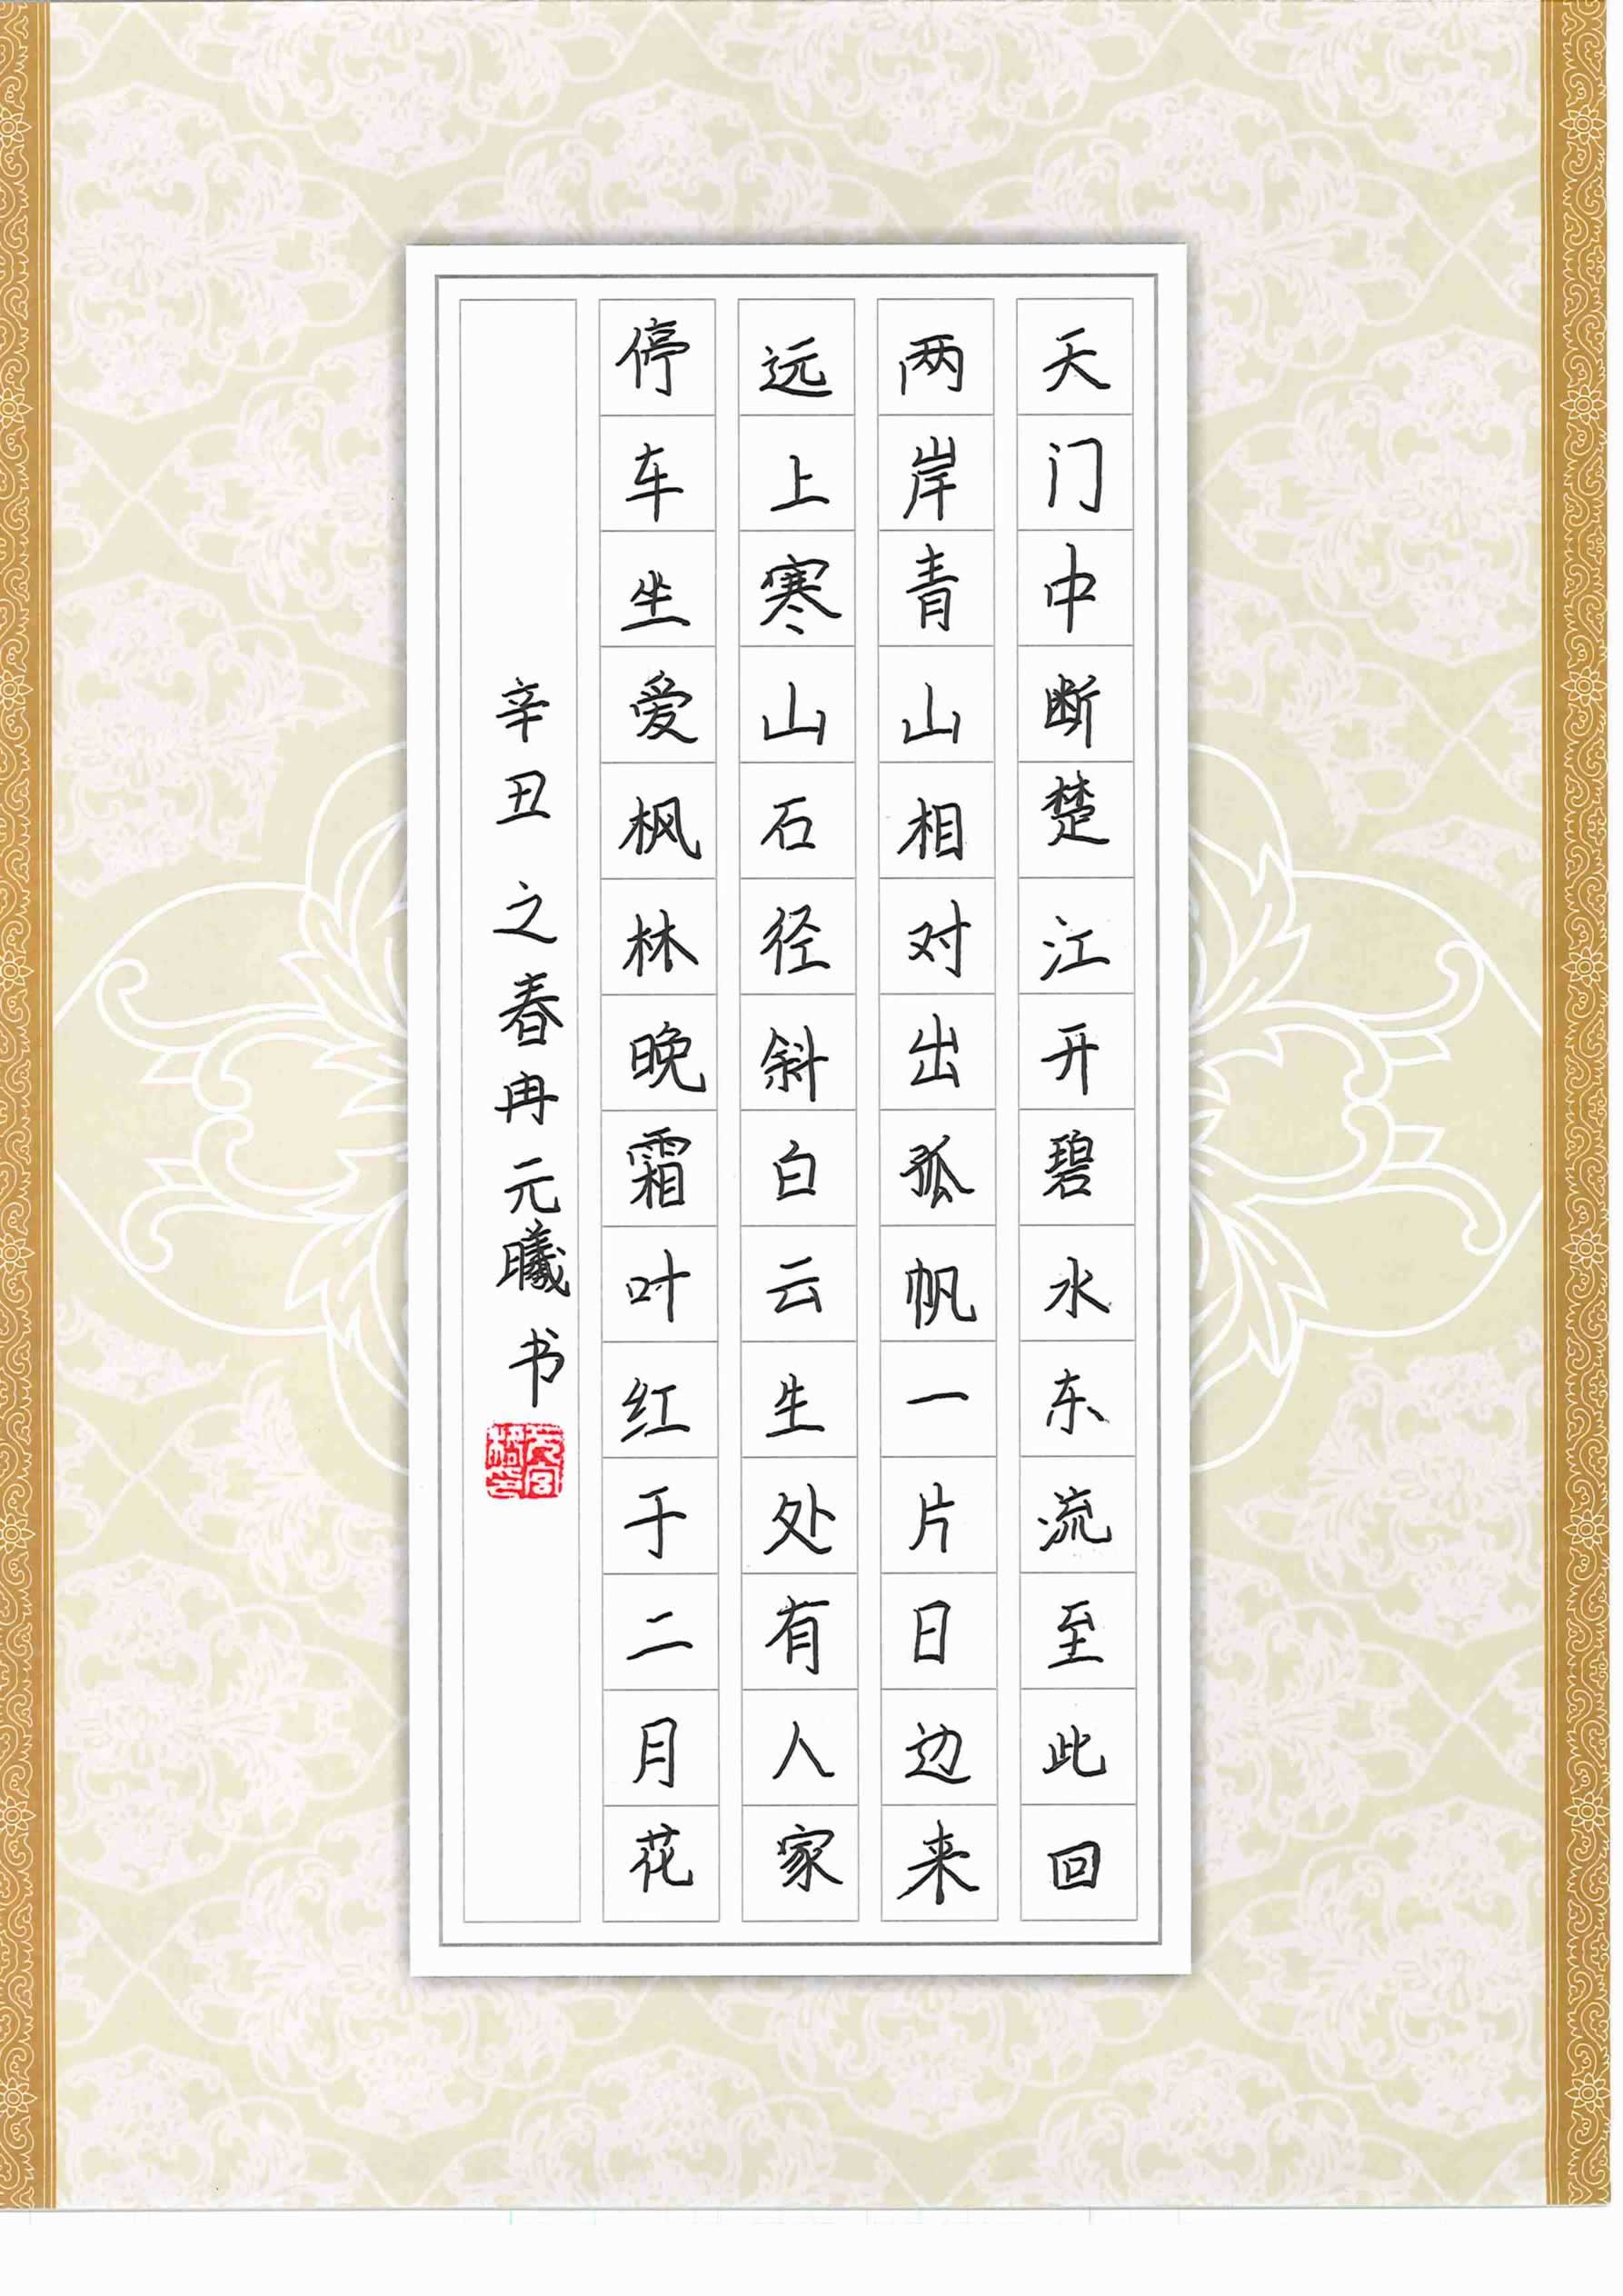 天门中断楚江开碧水东流至此回
两岸青山相对出孤帆一片日边来
远上寒山石径斜白云生处有人家
停车坐爱枫林晚霜叶红于二月花
辛丑之春冉元曦书